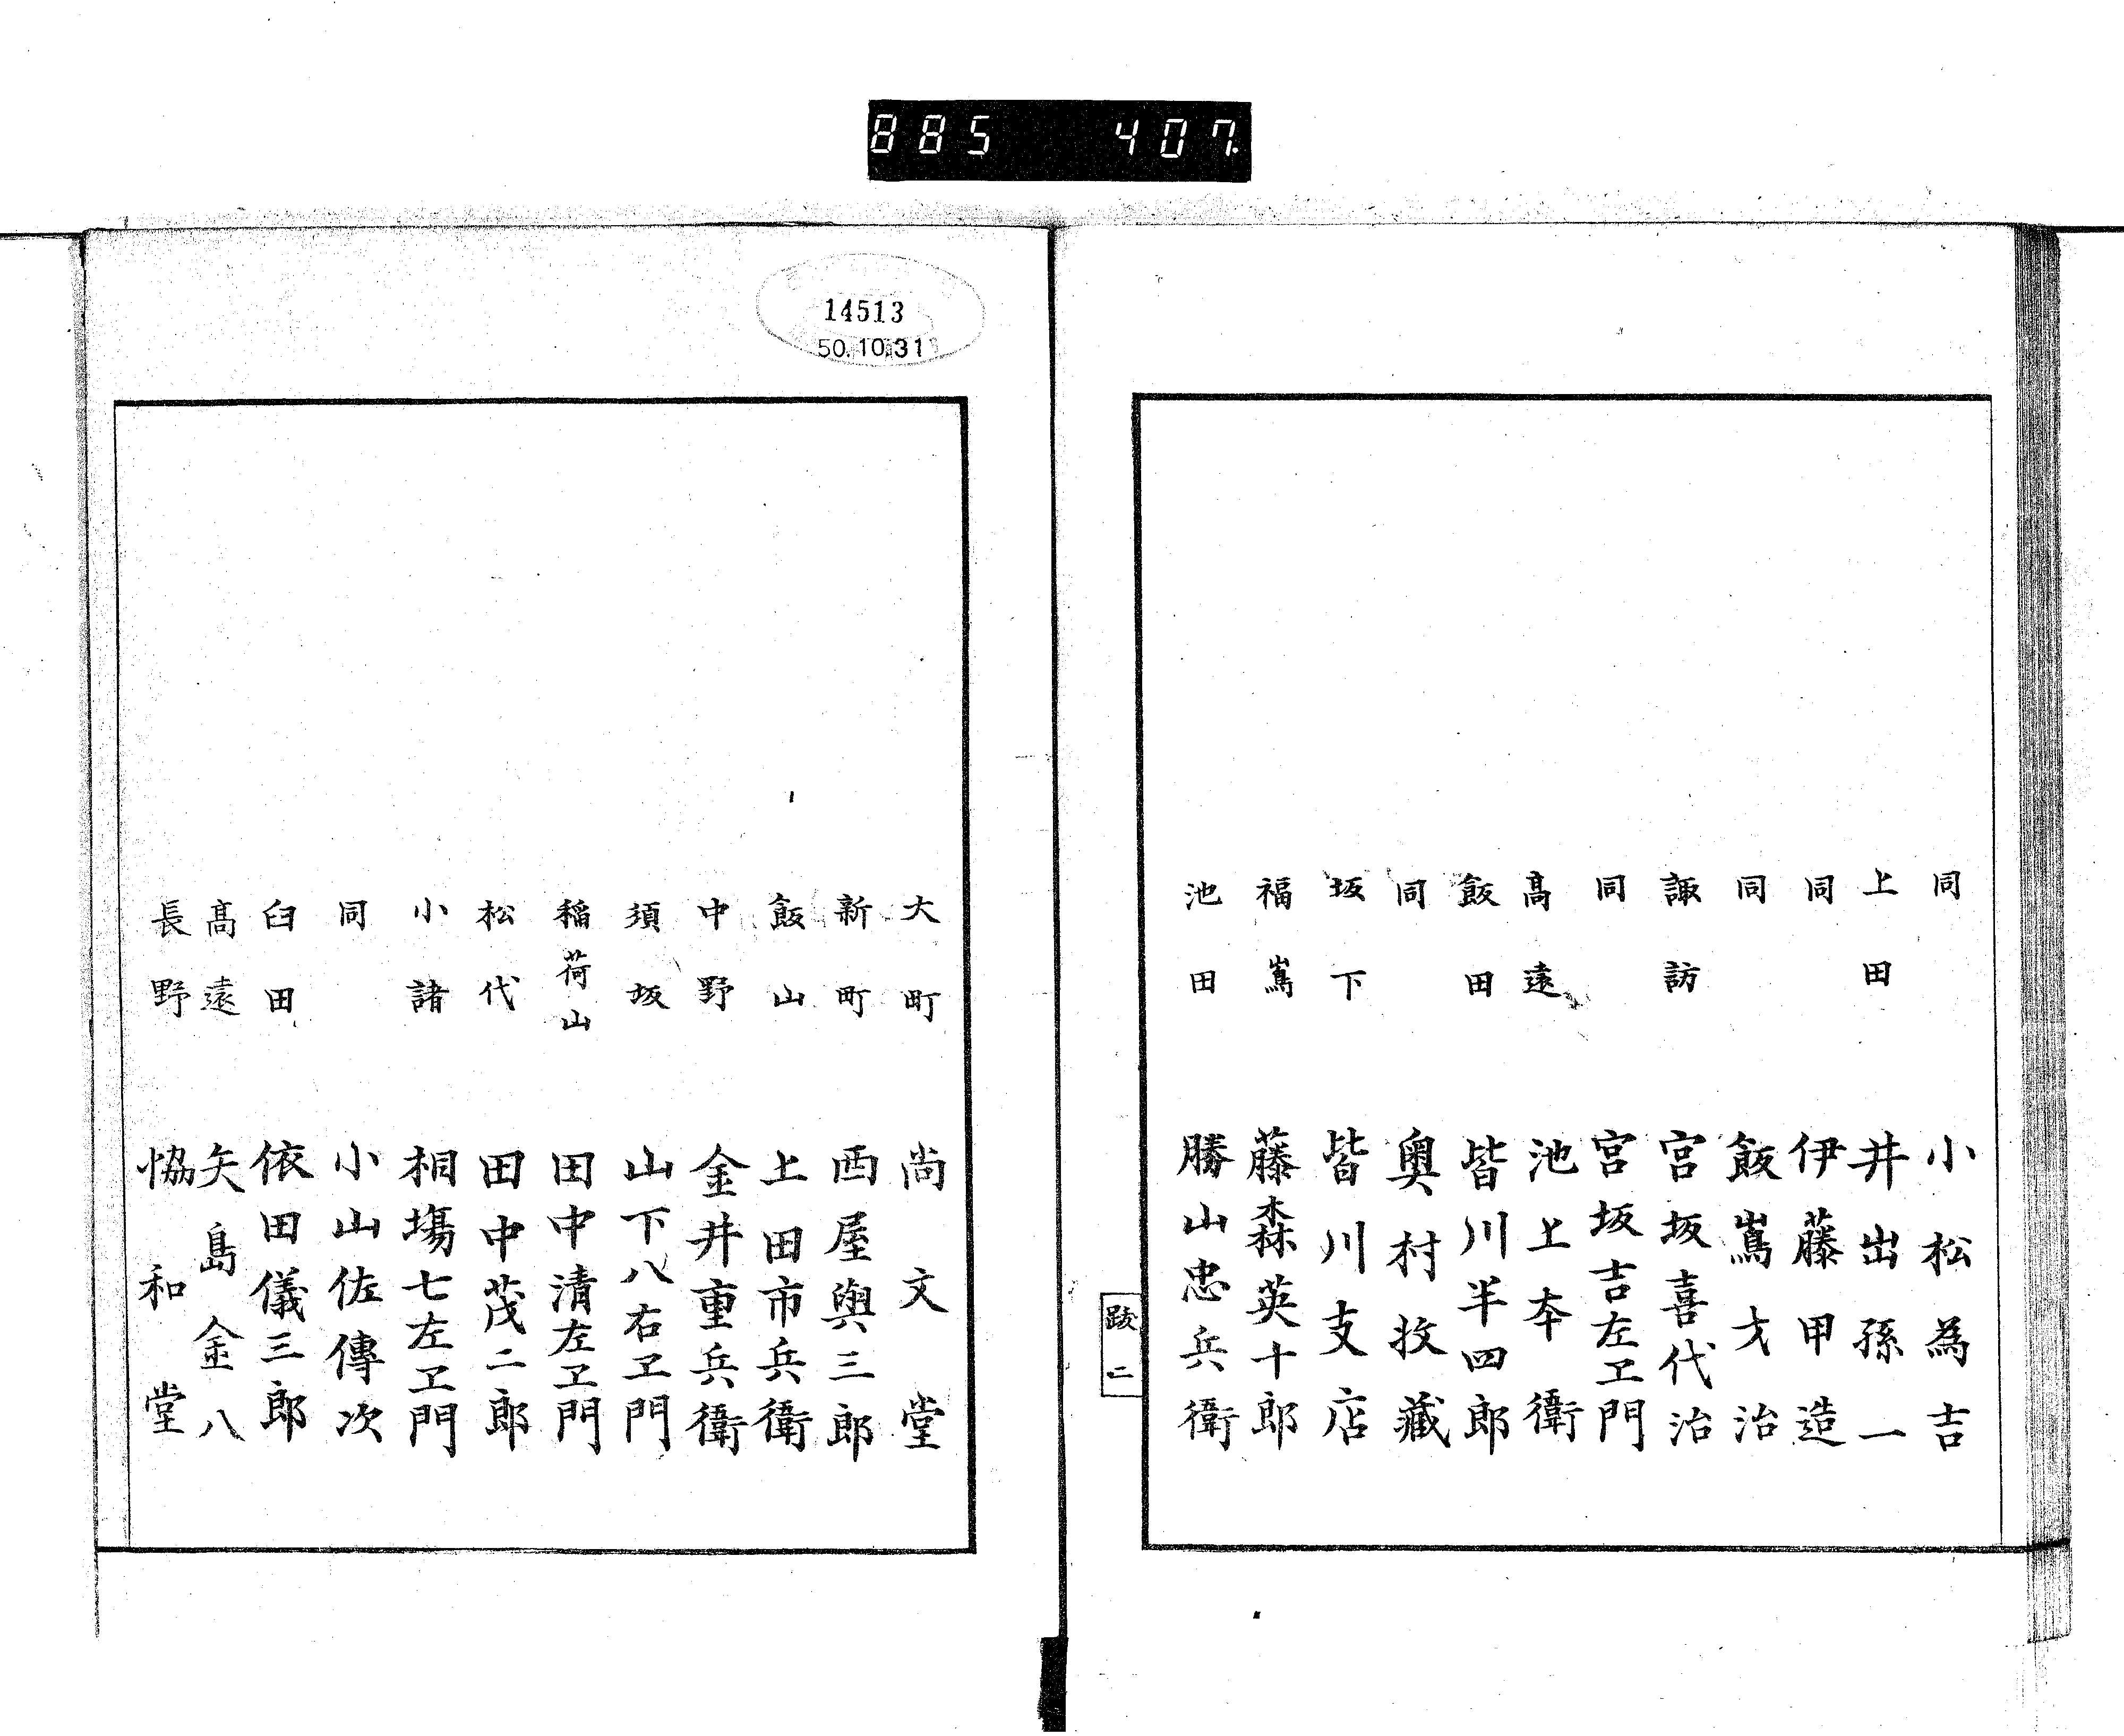 885 407.
同 小松為吉
上田 井出孫一
同 伊藤甲造
同 飯嶌才治
諏訪 宮坂喜代治
同 宮坂吉左ヱ門
髙遠 池上本衛
飯田 皆川半四郎
同 奥村牧藏
坂下 皆川支店
福嶌 藤森英十郎
池田 勝山忠兵衛
二
14513
50.10.31
大町 尚文堂
新町 西屋與三郎
飯山 上田市兵衛
中野 金井重兵衛
須坂 山下八右ヱ門
稲荷山 田中清左ヱ門
松代 田中茂二郎
小諸 相塲七左ヱ門
同 小山佐傳次
臼田 依田儀三郎
髙遠 矢島金八
長野 恊和堂